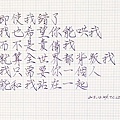 即使我錯了
我也希望你能哄我
而不是責備我
就算全世界都背叛我
我只需要你一個人
能和我站在一起